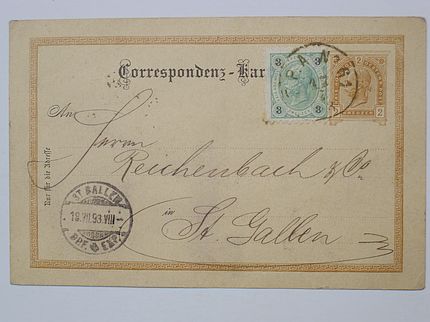 Correspondenz-Kar
3 3
3 3
2
2 2
An
Herrn
Reichenbach & Co
in
St. Gallen
Nur für die Adresse
ST. GALLEN
19.VII.93.VIII
BRF. EXP.